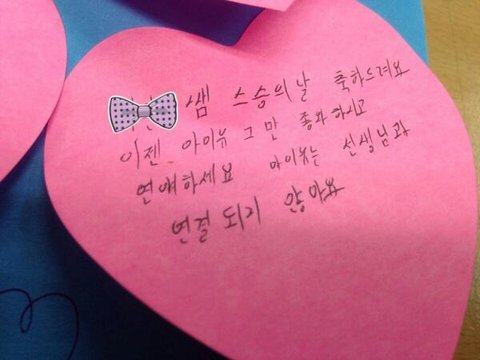 쌤 스승의날 축하드려요
이젠 아이유 그만 좋아하시고
연애하세요 아이유는 선생님과
연결되기 않아요